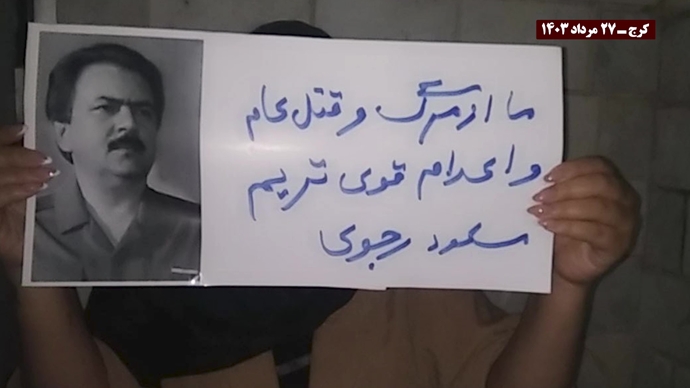 کرج ـ ۲۷ مرداد ۱۴۰۳
ما از مرگ و قتل عام
و اعدام قوی تریم
مسعود رجوی